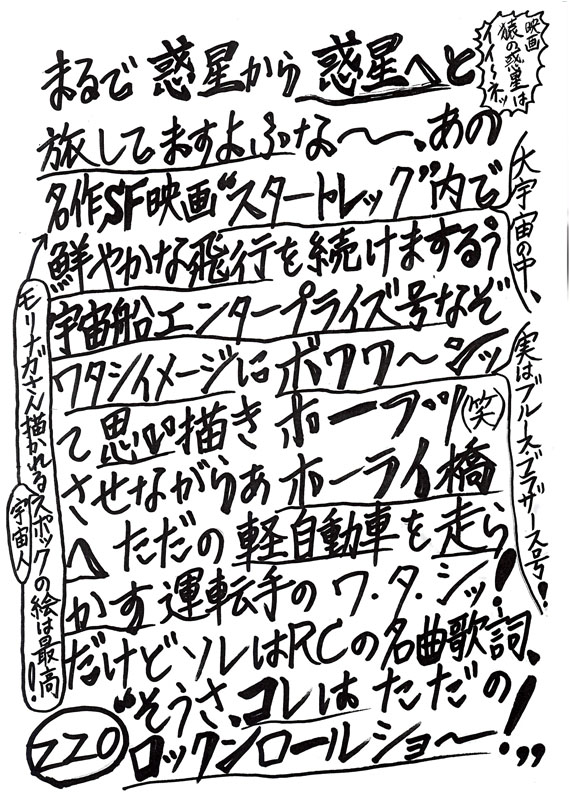 映画
猿の惑星は
イイ〜ネッ
まるで惑星から惑星へと
旅してますよふな〜、あの
名作SF映画“スタートレック”内で
鮮やかな飛行を続けまするう
宇宙船エンタープライズ号なぞ
ワタシイメージにボワワ〜ンッ
て思ひ描きホープッ(笑)
させながらあホーライ橋
へただの軽自動車を走ら
かす運転手のワ.タ.シッ!
だけどソレはRCの名曲歌詞、
“そうさ、コレはただの
ロックンロールショ〜!”
大宇宙の中、実はブルース・ブラザース号!
モリナガさん描かれるスポックの絵は最高!
宇宙人
220